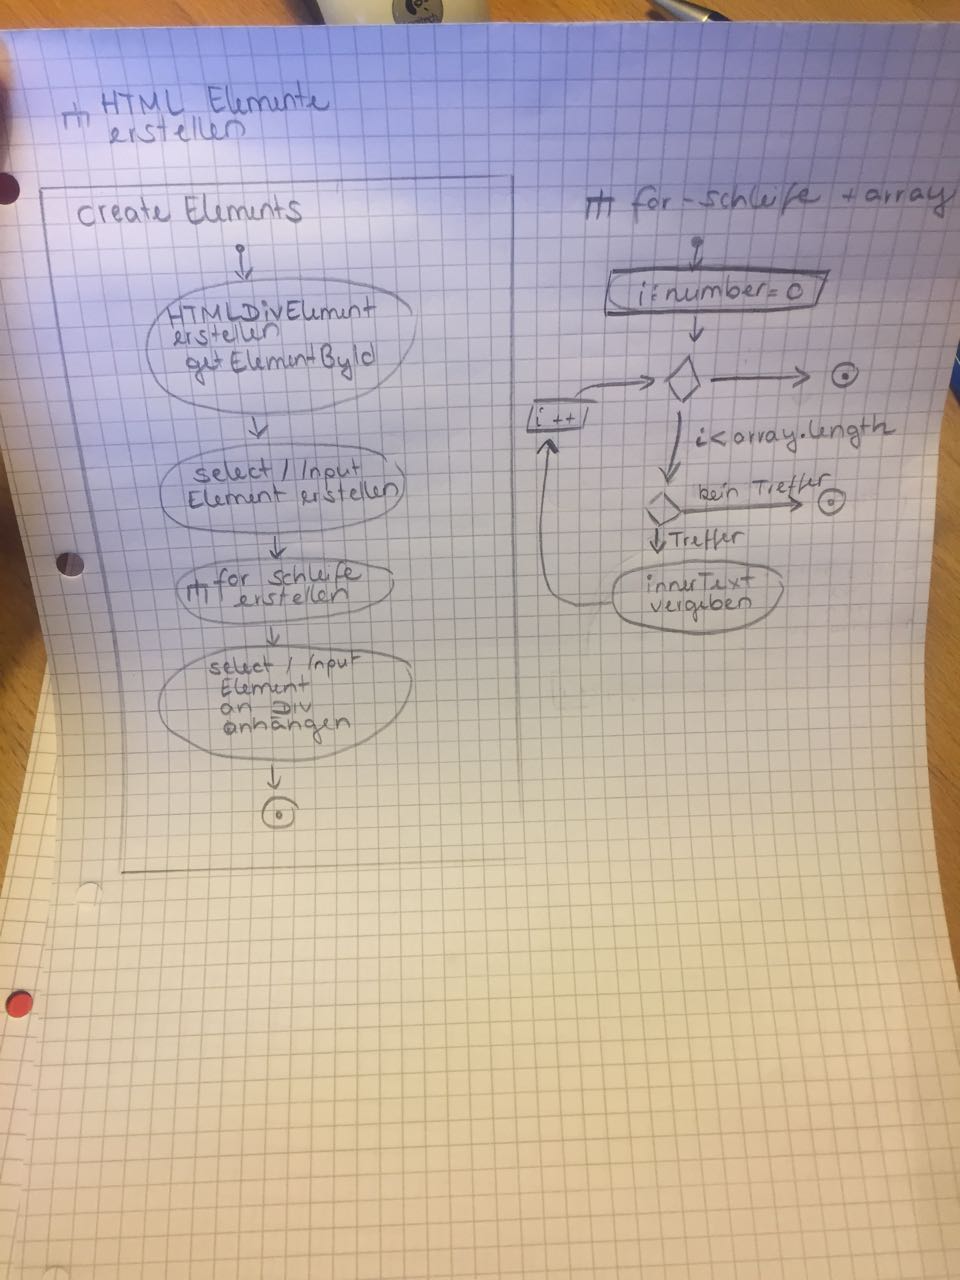 HTML Elemente
erstellen
create Elements
HTMLDivElement
erstellen
getElementById
select / Input
Element erstellen
for schleife
erstellen
select / Input
Element
an Div
anhängen
for-schleife + array
i:number=0
i ++
i<array.length
kein Treffer
Treffer
innerText
vergeben